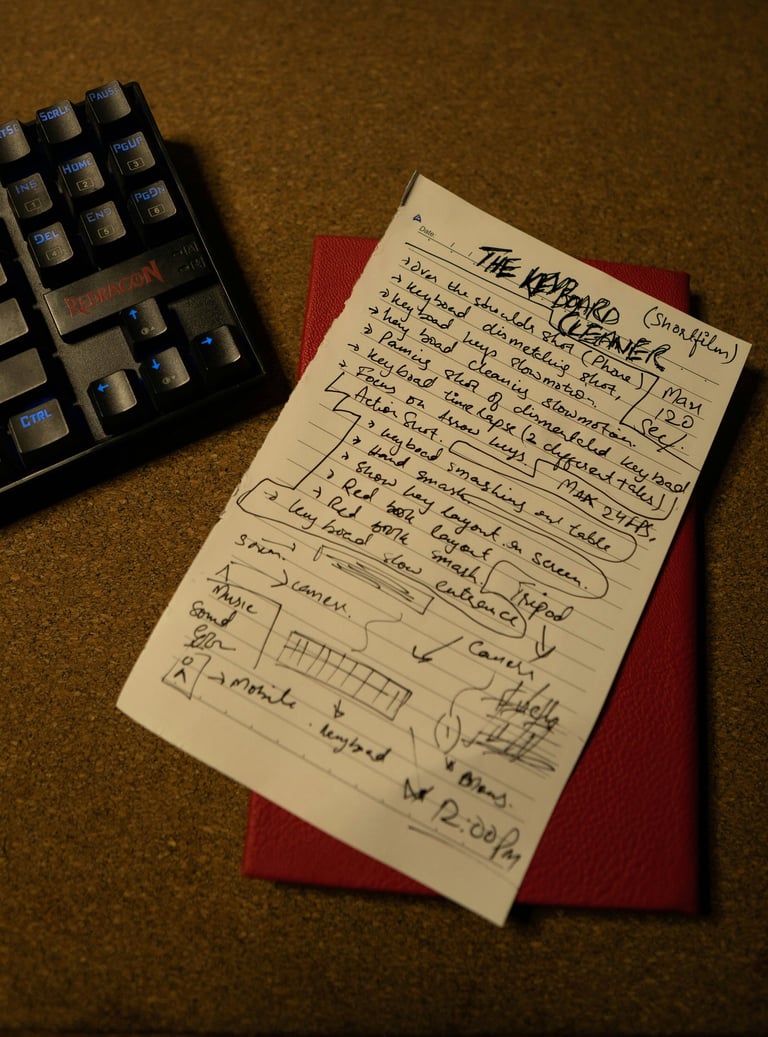 PAUSE
SCRLK
PGUP
3
HOME
2
INS
1
PGDN
6
END
5
DEL
4
REDRAGON
↑
← ↓ →
CTRL
Date:
THE KEYBOARD
CLEANER
(Shortfilm)
→ Over the shoulds shot (Phone)
→ Keyboad dismetling shot,
→ Keyboad keys slowmotion.
→ Key boad cleaning slowmotion.
→ Panning shot of dismenteled keyboad
→ Keyboad time lapse (2 different takes)
→ Focus on Arrow keys.
Action Shot.
Max
120
Sec/.
Max 24 FPS,
→ Keyboad smashing on table
→ Hand smash
→ Show key layout on screen.
→ Red book layout
→ Red book smash.
→ Keyboad slow entrance
Tripod
→ camera.
Music
Sound
→ Mobile
Keyboad
Camera
12:00 Pm